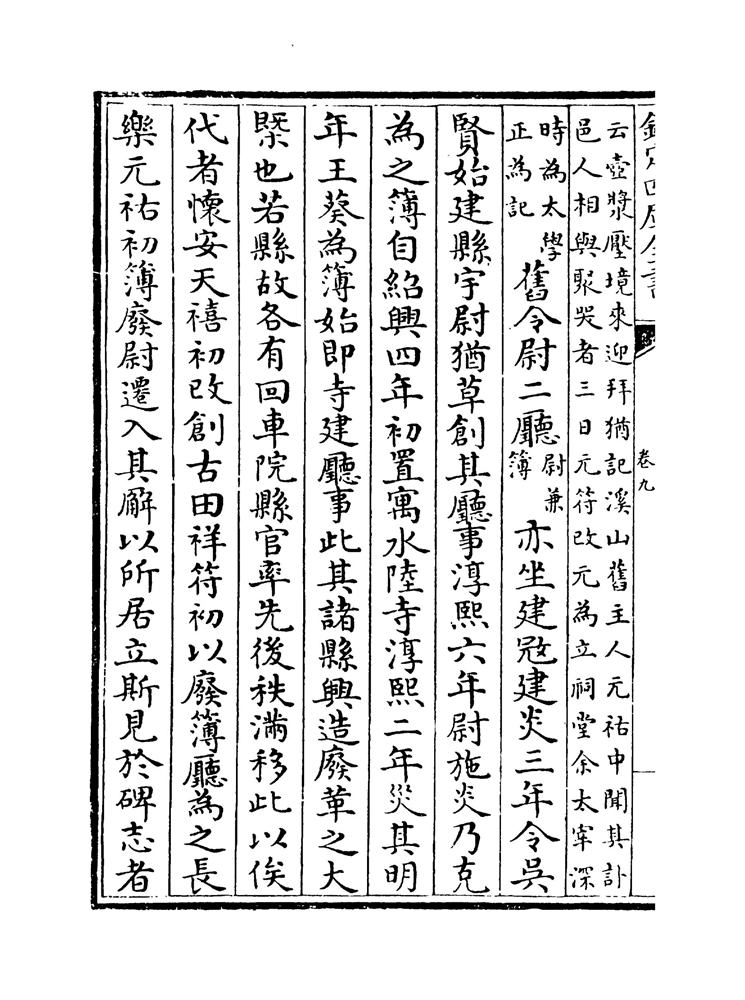 欽定四庫全書
卷九
云壺漿壓境來迎拜猶記溪山舊主人元祐中聞其訃
邑人相與聚哭者三日元符改元為立祠堂余太宰深
時為太學
正為記
舊令尉二廳
尉兼
簿
亦坐建㓂建炎三年令吳
賢始建縣宇尉猶草創其廳事淳熙六年尉施炎乃克
為之簿自紹興四年初置寓水陸寺淳熙二年災其明
年王葵為簿始即寺建廳事此其諸縣興造廢革之大
槩也若縣故各有回車院縣官率先後秩滿移此以俟
代者懷安天禧初改創古田祥符初以廢簿廳為之長
樂元祐初簿廢尉遷入其廨以所居立斯見於碑志者